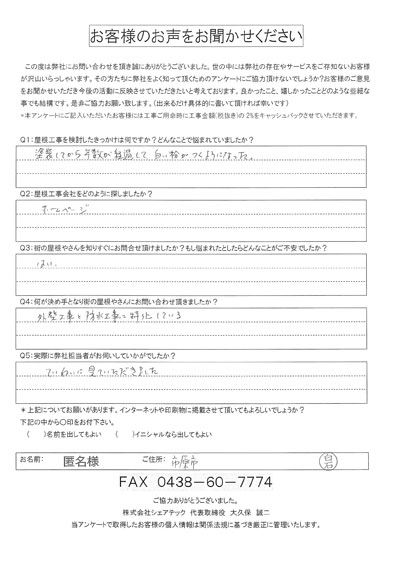 お客様のお声をお聞かせください
この度は弊社にお問い合わせを頂き誠にありがとうございました。世の中には弊社の存在やサービスをご存知ないお客様
が沢山いらっしゃいます。その方たちに弊社をよく知って頂くためのアンケートにご協力頂けないでしょうか?お客様のご意見
をお聞かせいただき今後の活動に反映させていただきたいと考えております。良かったこと、嬉しかったことどのような些細な
事でも結構です。是非ご協力お願い致します。(出来るだけ具体的に書いて頂ければ幸いです)
*本アンケートにご記入いただいたお客様には工事ご用命時に工事金額(税抜き)の2%をキャッシュバックさせていただきます。
Q1:屋根工事を検討したきっかけは何ですか?どんなことで悩まれていましたか?
塗装してから年数が経過して白い粉がつくようになった。
Q2:屋根工事会社をどのように探しましたか?
ホームページ
Q3:街の屋根やさんを知りすぐにお問合せ頂けましたか?もし悩まれたとしたらどんなことがご不安でしたか?
はい.
Q4:何が決め手となり街の屋根やさんにお問い合わせ頂きましたか?
外壁工事と防水工事に特化している
Q5:実際に弊社担当者がお伺いしていかがでしたか?
ていねいに見ていただきました
*上記についてお願いがあります。インターネットや印刷物に掲載させて頂いてもよろしいでしょうか?
下記の中から〇印をお付下さい。
( )名前を出してもよい ( )イニシャルなら出してもよい
お名前: 匿名様 ご住所: 市原市
FAX 0438-60-7774
ご協力ありがとうございました。
株式会社シェアテック 代表取締役 大久保 誠二
当アンケートで取得したお客様の個人情報は関係法規に基づき厳正に管理いたします。